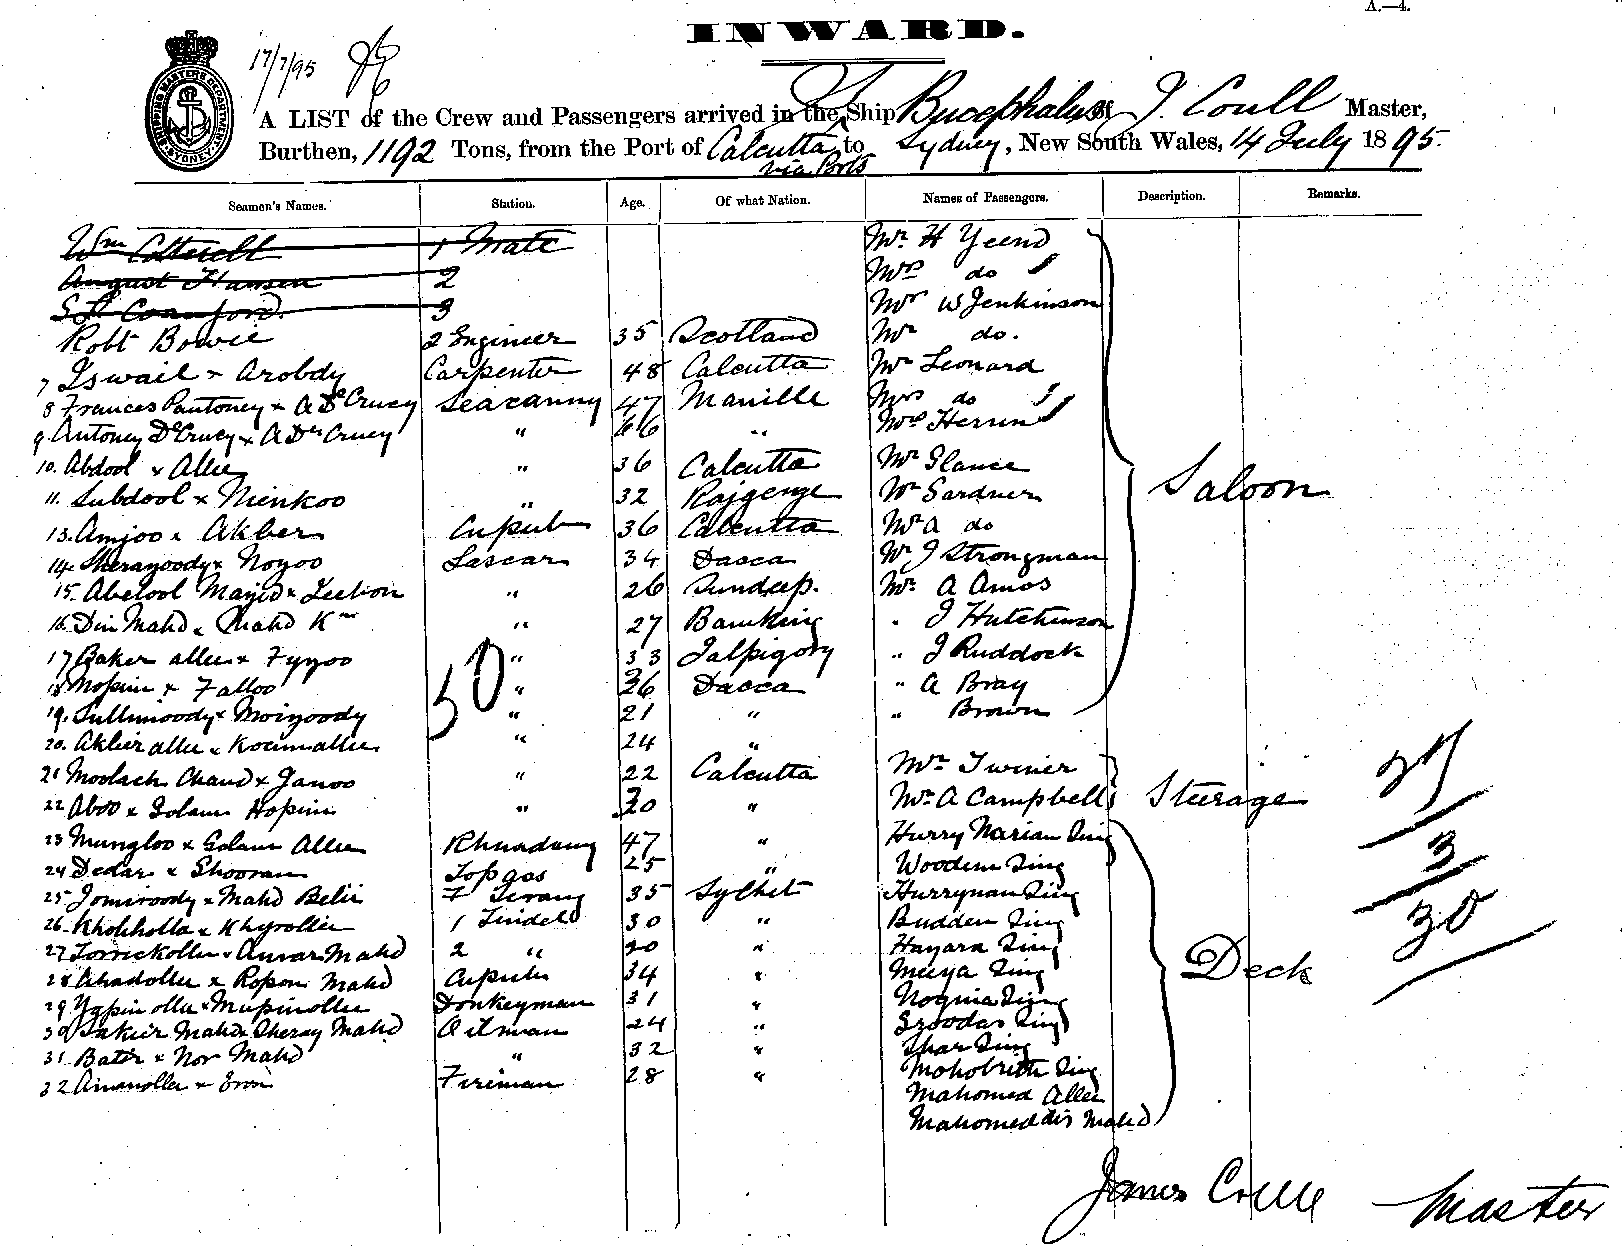 A.—4.
INWARD.
17/7/95
SHIPPING MASTERS DEPARTMENT SYDNEY
A LIST of the Crew and Passengers arrived in the Ship Bucephalus of J. Coull Master,
Burthen, 1192 Tons, from the Port of Calcutta to Sydney, New South Wales, 14 July 1895.
via Ports
Seamen's Names. Station. Age. Of what Nation. Names of Passengers. Description. Remarks.
Wm Cotterell 1 Mate Mr H Yeend
August Hansen 2 Mrs do
Crawford 3 Mr W Jenkinson
Robt Bowie 2 Engineer 35 Scotland Mr do.
7 Iswail x Arobdy Carpenter 48 Calcutta Mr Leonard
8 Frances Pantoney x A De Crucy Seacunny 47 Manille Mrs do
9. Antoney De Crucy x A De Crucy " 66 " Herren
10. Abdool x Allee " 36 Calcutta Mr Glance
11. Subdool x Nienkoo " 32 Rajgenge Mr Gardner
13. Amjoo x Akber 36 Calcutta Mr A do
14. Sheragoody x Nogoo Lascar 34 Dacca Mr J Strongman
15. Majid x " 26 Sundeep. Mr A Amos
16. Din Mahd x Mahd Km " 27 " J Hutchinson
17 Baker allee x Fyzoo " 33 Jalpigory " J Ruddock
18 Mopin x Falloo " 26 Dacca " A Bray
50
19. x Moizoody " 21 " " Brown
20. Akber allee x Koeimallee " 24 "
21 Moolach Chand x Janoo " 22 Calcutta Mr Turner
22 Aboo x Golam Hopin " 30 " Mr A Campbell
23 Mungloo x Golam Allee 47 " Hurry Narian Sing
24 Dedar x Topgas 25 " Wooden Sing
25 Jomiroody x Mahd F Serang 35 Sylhet Sing
26. x Khyrollee 1 Tindel 30 " Budden Sing
27 x Anvar Mahd 2 " " Hayara Sing
28 Ahadollee x Mahd 34 " Meeya Sing
29 x Mupinollee Donkeyman 31 " Sing
30 Fakier Mahd x Sheray Mahd Oilman 24 " Sroodas Sing
31. Bater x Nor Mahd " 32 " Sing
32 Amanollee x Fireman 28 " Sing
Mahomed Allee
Mahd
Saloon
Sturage
Deck
27
3
30
James Coull Master